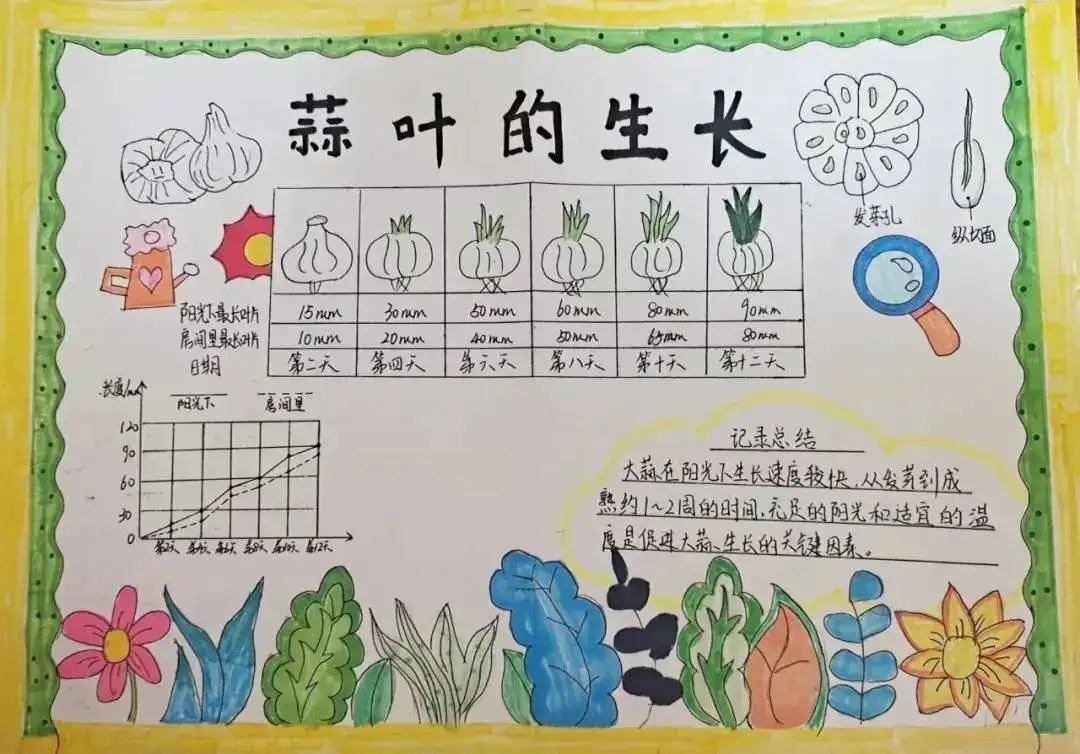 蒜叶的生长
发芽孔
纵切面
阳光下最长叶片 15mm 30mm 50mm 60mm 80mm 90mm
房间里最长叶片 10mm 20mm 40mm 50mm 65mm 80mm
日期 第二天 第四天 第六天 第八天 第十天 第十二天
长度/mm 阳光下 房间里
120
90
60
30
0
第2天 第4天 第6天 第8天 第10天 第12天
记录总结
大蒜在阳光下生长速度较快,从发芽到成
熟约1~2周的时间,充足的阳光和适宜的温
度是促进大蒜生长的关键因素。